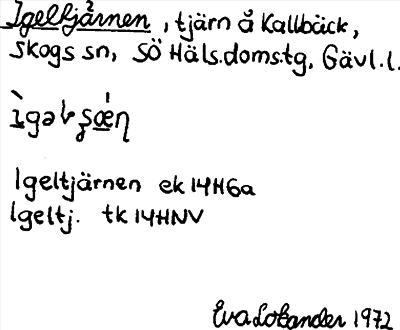 Igeltjärnen, tjärn å Kallbäck,
Skogs sn, SÖ Häls.doms.tg, Gävl.l.
Igeltjärnen ek 14HGa
Igeltj. tk 14HNV
Eva Lobander 1972